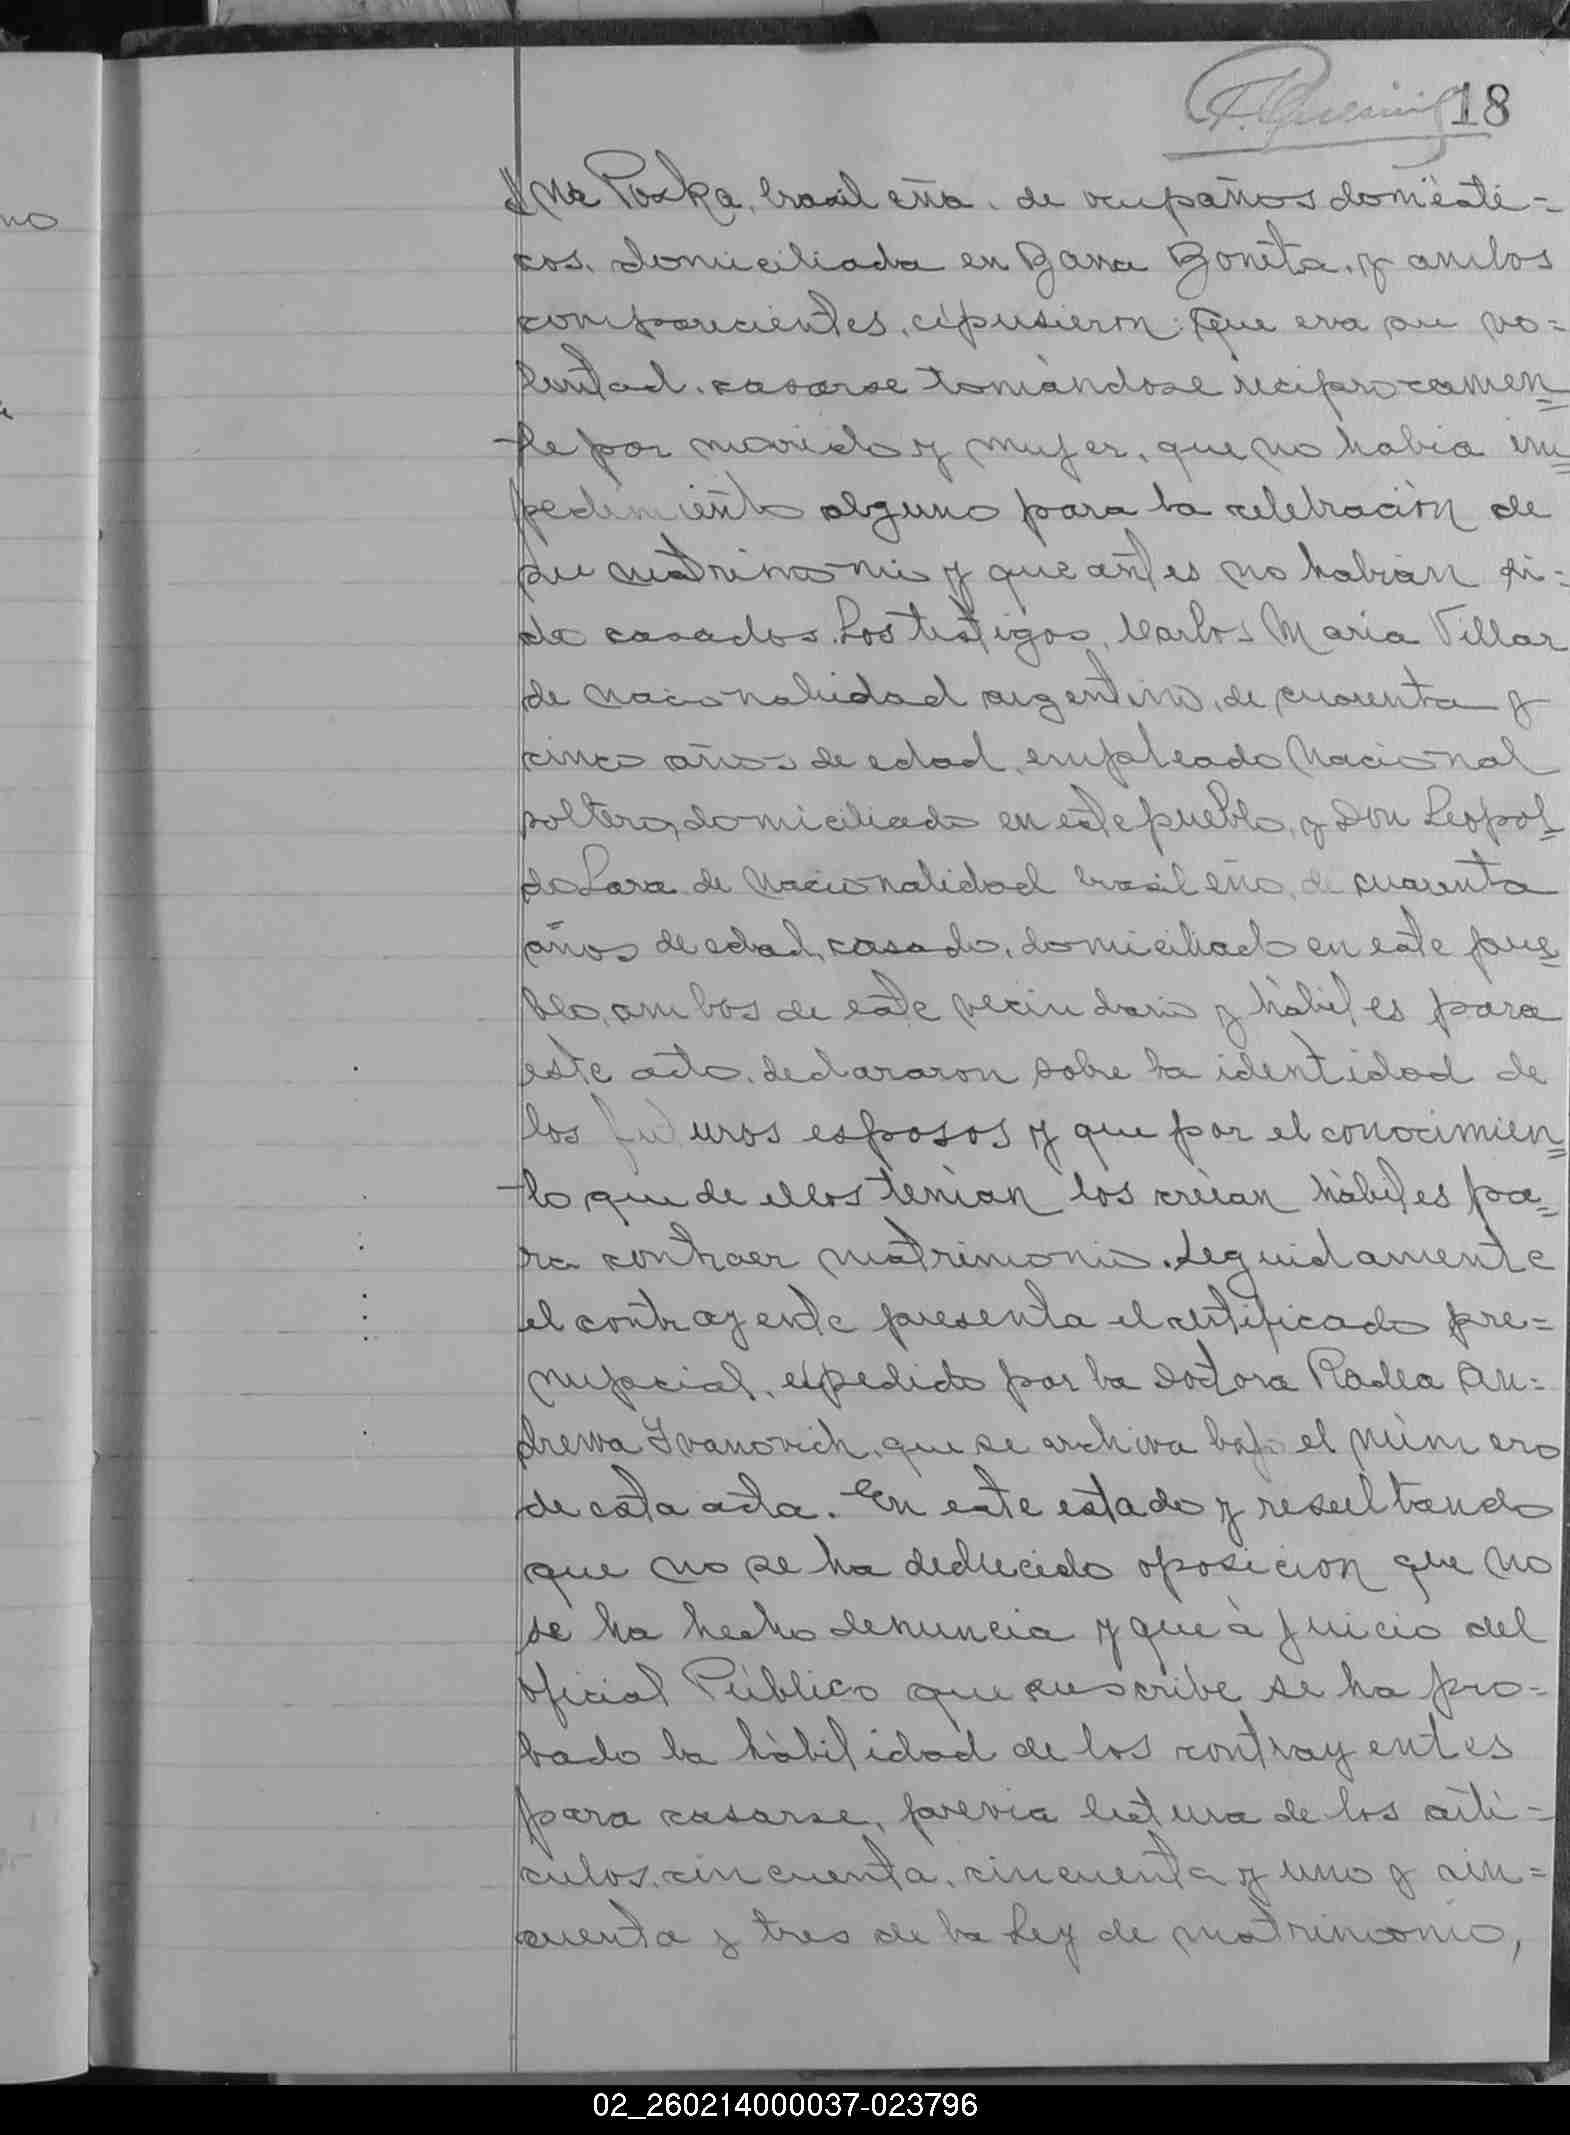 18
Poska, brasileña, de ocupaños domésti=
cos, domiciliada en Barra Bonita, y ambos
comparecientes, expusieron: Que era su vo=
luntad, casarse tomándose reciprocamen=
te por marido y mujer, que no habia im=
pedimiento alguno para la celebración de
su matrimonio y que antes no habian si=
do casados. Los testigos, Carlos Maria Villar
de nacionalidad argentino, de cuarenta y
cinco años de edad, empleado Nacional
soltero, domiciliado en este pueblo, y Don Leopol=
do Lara de nacionalidad brasileño, de cuarenta
años de edad, casado, domiciliado en este pue=
blo, ambos de este vecindario y hábiles para
este acto, declararon sobre la identidad de
los futuros esposos y que por el conocimien=
to que de ellos tenian los creian hábiles pa=
ra contraer matrimonio. Seguidamente
el contrayente presenta el certificado pre=
nupcial, expedido por la Doctora Radea An=
drewa Ivanovich, que se archiva bajo el número
de esta acta. En este estado y resultando
que no se ha deducido oposicion que no
se ha hecho denuncia y que á juicio del
oficial Público que suscribe se ha pro=
bado la hábilidad de los contrayentes
para casarse, previa lectura de los arti=
culos, cincuenta, cincuenta y uno y cin=
cuenta y tres de la Ley de matrimonio,
02_260214000037-023796